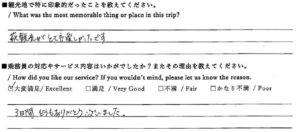 ■観光地で特に印象的だったことを教えてください。
/ What was the most memorable thing or place in this trip?
とても楽しかったです
■乗務員の対応やサービス内容はいかがでしたか？またその理由を教えてください。
/ How did you like our service? If you wouldn't mind, please let us know the reason.
☑大変満足 / Excellent □満足 / Very Good □不満 / Fair □かなり不満 / Poor
3日間 どうもありがとうございました。